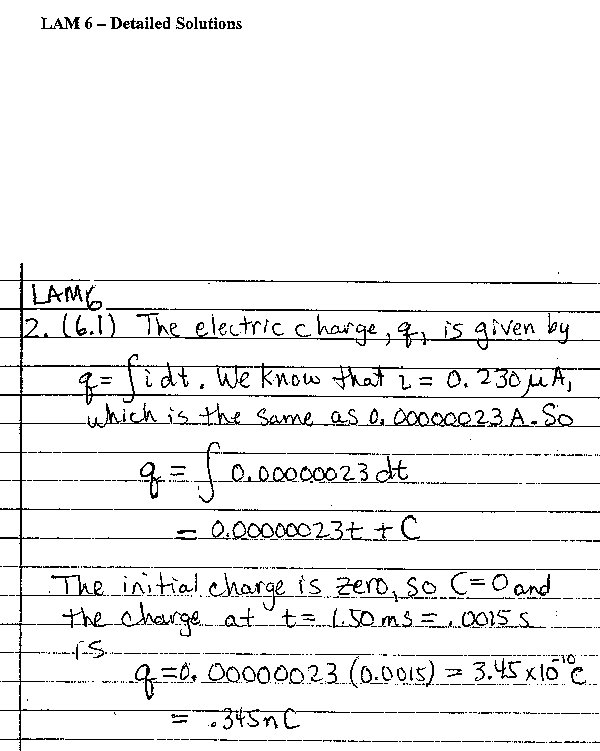 LAM 6 – Detailed Solutions
LAM6
2. (6.1) The electric charge, q, is given by
q = ∫ i dt. We know that i = 0.230 μA,
which is the same as 0.00000023 A. So
q = ∫ 0.00000023 dt
= 0.00000023t + C
The initial charge is zero, so C = 0 and
the charge at t = 1.50 ms = .0015 s
is
q = 0.00000023 (0.0015) = 3.45 x 10⁻¹⁰ C
= .345 nC